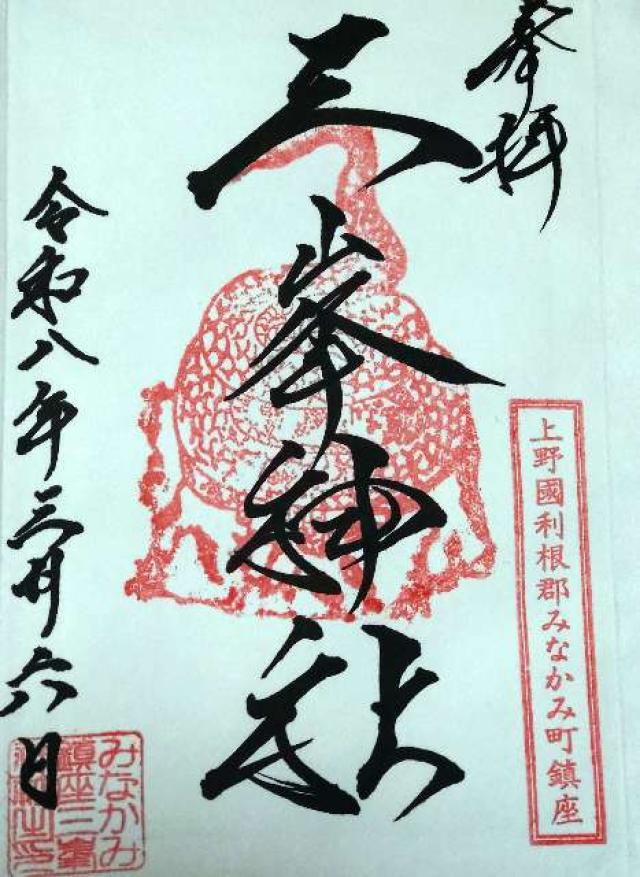 奉拝
上野國利根郡みなかみ町鎮座
三峯神社
令和八年三月六日
みなかみ
鎮座三峯
神社之印